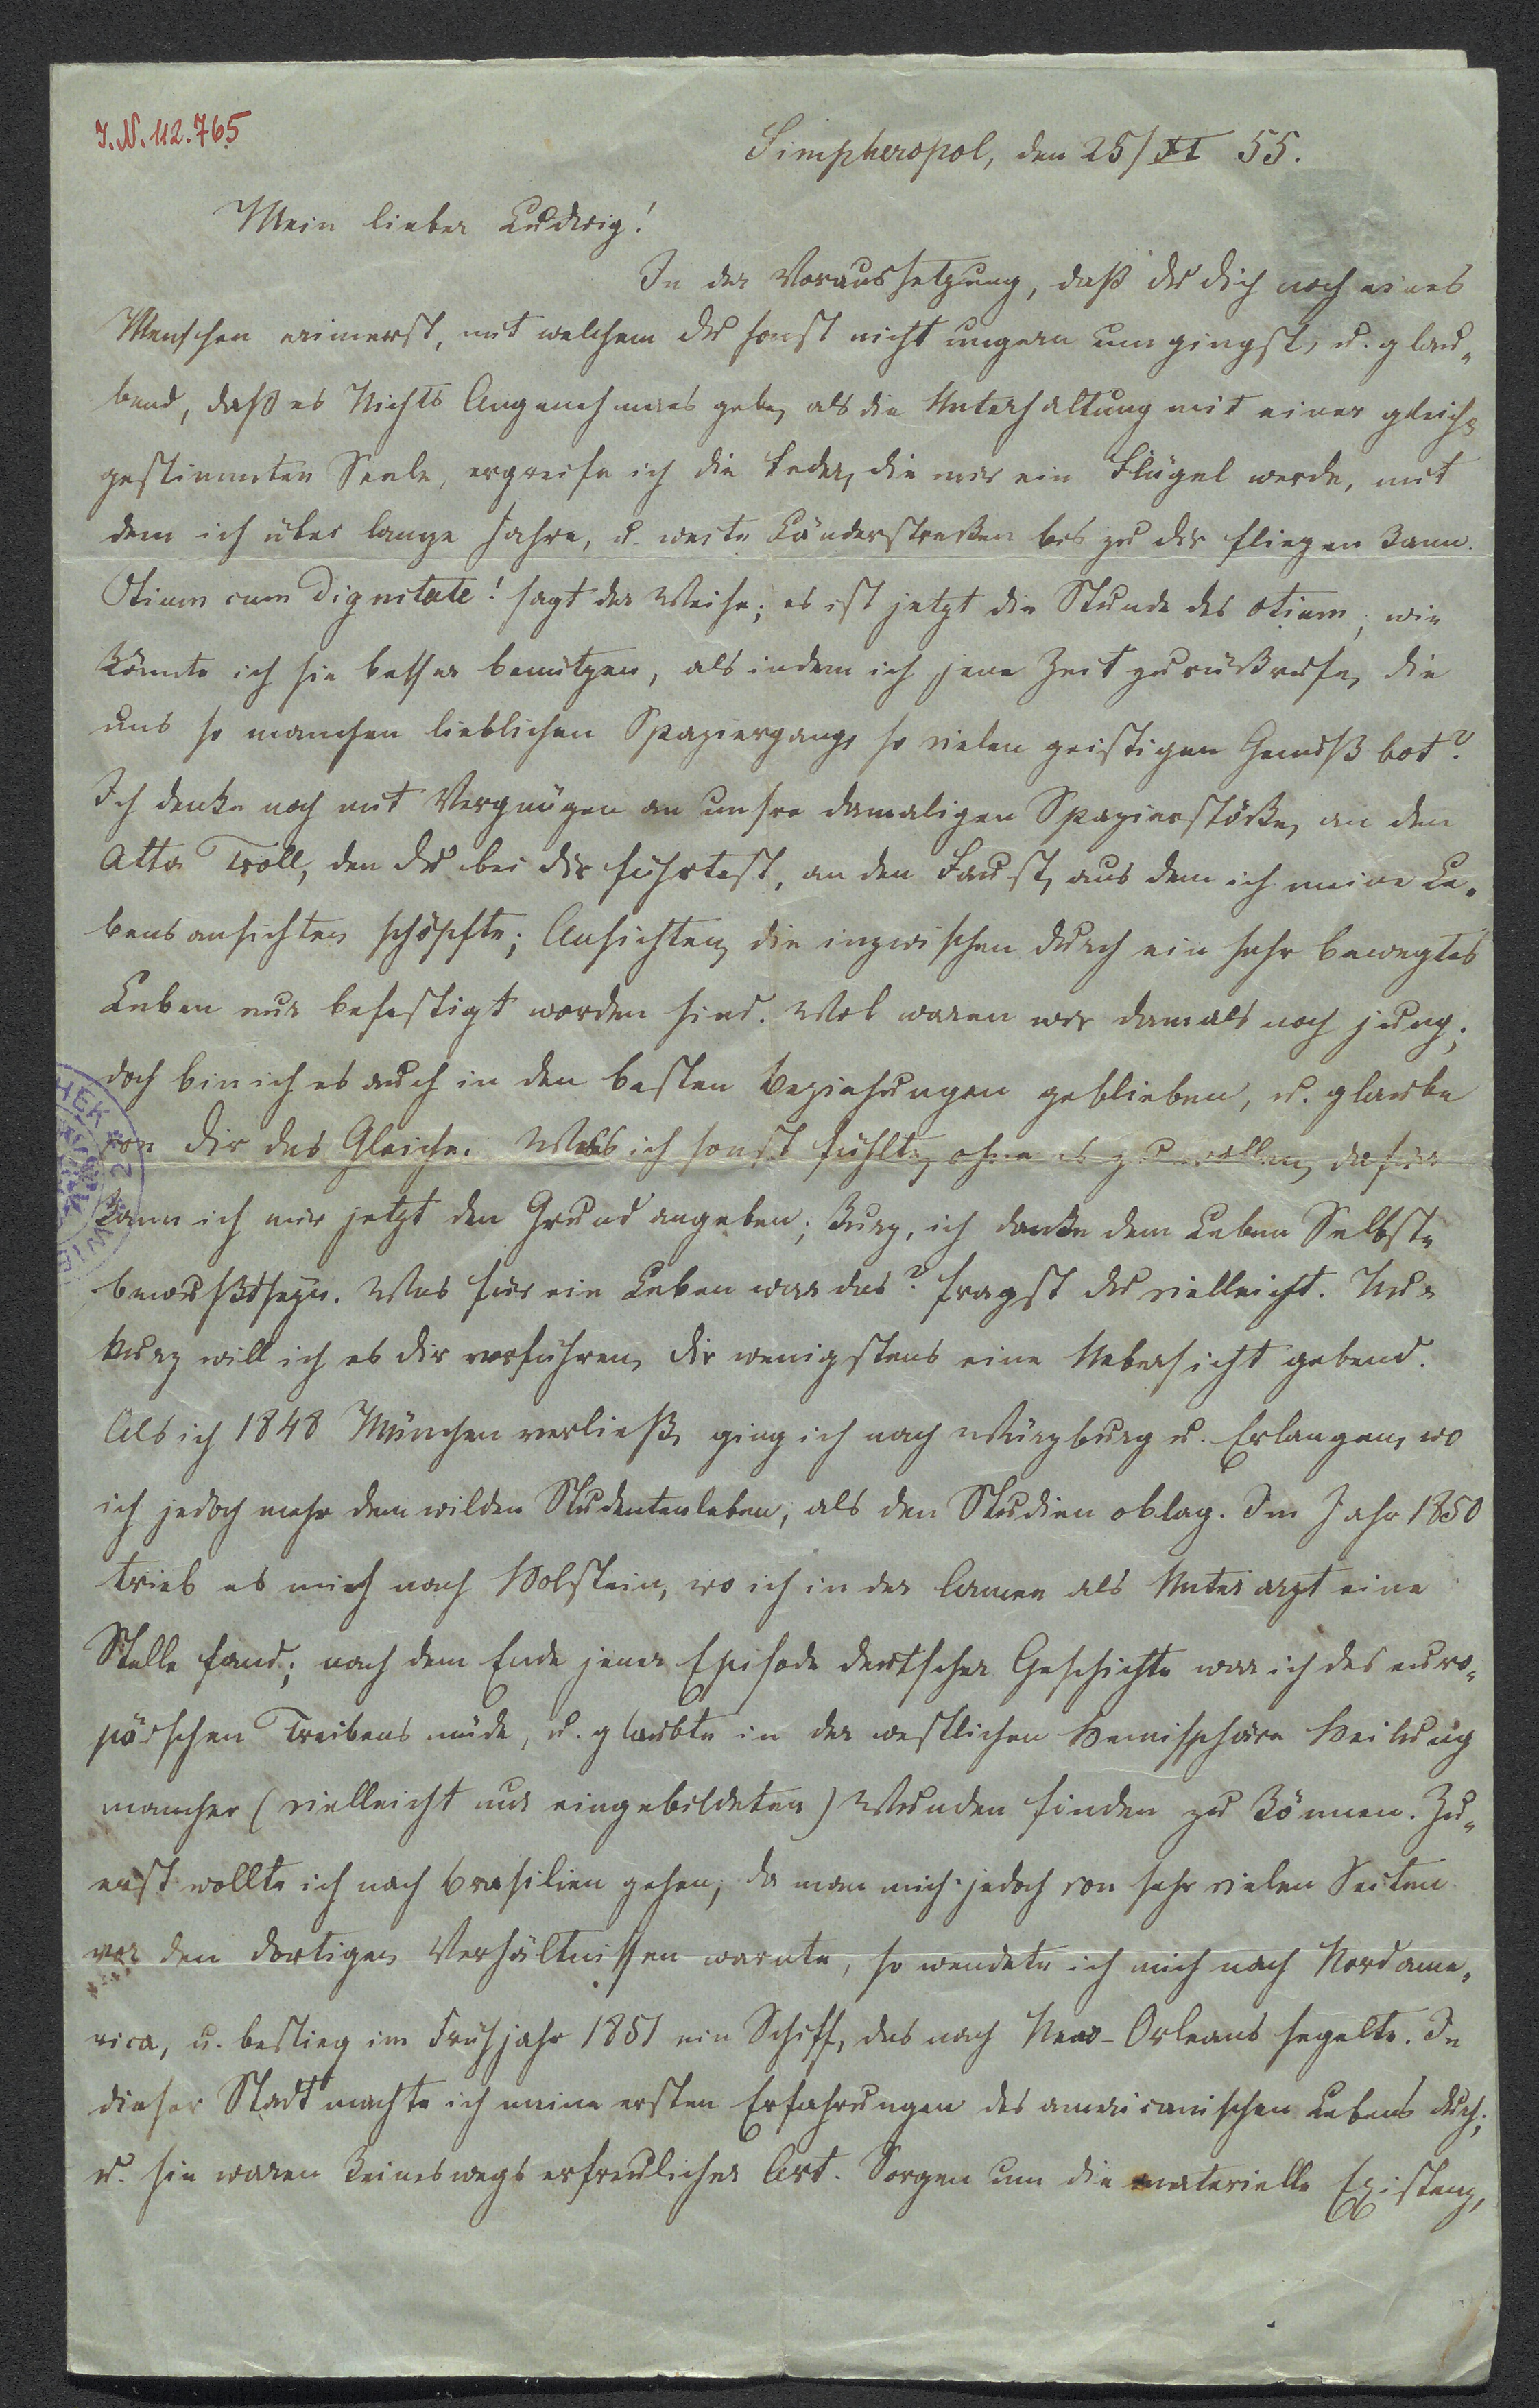 I.N. 112.765
Simpheropol, den 25/XI 55.
Mein lieber Ludwig!
In der Voraussetzung, daß du dich noch eines
Menschen erinnerst, mit welchem du sonst nicht ungern umgingst, u. glau-
bend, daß es Nichts Angenehmeres gebe, als die Unterhaltung mit einer gleich-
gestimmten Seele, ergreife ich die Feder, die mir ein Flügel werde, mit
dem ich über lange Jahre, u. weite Länderstrecken bis zu dir fliegen kann.
Otium cum Dignitate! sagt der Weise; es ist jetzt die Stunde des otium, wie
könnte ich sie besser benützen, als indem ich jene Zeit zurückrufe, die
uns so manchen lieblichen Spaziergang, so vielen geistigen Genuß bot?
Ich denke noch mit Vergnügen an unsre damaligen Spazierstöcke, an den
Atta Troll, den du bei dir führtest, an den Faust, aus dem ich meine Le-
bensansichten schöpfte; Ansichten, die inzwischen durch ein sehr bewegtes
Leben nur befestigt worden sind. Wol waren wir damals noch jung;
doch bin ich es auch in den besten Beziehungen geblieben, u. glaube
von dir das Gleiche. Was ich sonst fühlte, ohne es zu wollen, dafür
kann ich mir jetzt den Grund angeben; kurz, ich danke dem Leben Selbst-
bewußtseyn. Was für ein Leben war das? fragst du vielleicht. Nur
kurz will ich es dir vorführen, dir wenigstens eine Uebersicht gebend.
Als ich 1848 München verließ, ging ich nach Würzburg u. Erlangen, wo
ich jedoch mehr dem wilden Studentenleben, als den Studien oblag. Im Jahr 1850
trieb es mich nach Holstein, wo ich in der Armee als Unterarzt eine
Stelle fand; nach dem Ende jener Episode deutscher Geschichte war ich des euro-
päischen Treibens müde, u. glaubte in der westlichen Hemisphäre Heilung
mancher (vielleicht nur eingebildeten) Wunden finden zu können. Zu-
erst wollte ich nach Brasilien gehen; da man mich jedoch von sehr vielen Seiten
vor den dortigen Verhältnissen warnte, so wendete ich mich nach Nordame-
rica, u. bestieg im Frühjahr 1851 ein Schiff, das nach New-Orleans segelte. In
dieser Stadt machte ich meine ersten Erfahrungen des americanischen Lebens durch;
u. sie waren keineswegs erfreulicher Art. Sorgen um die materielle Existenz,